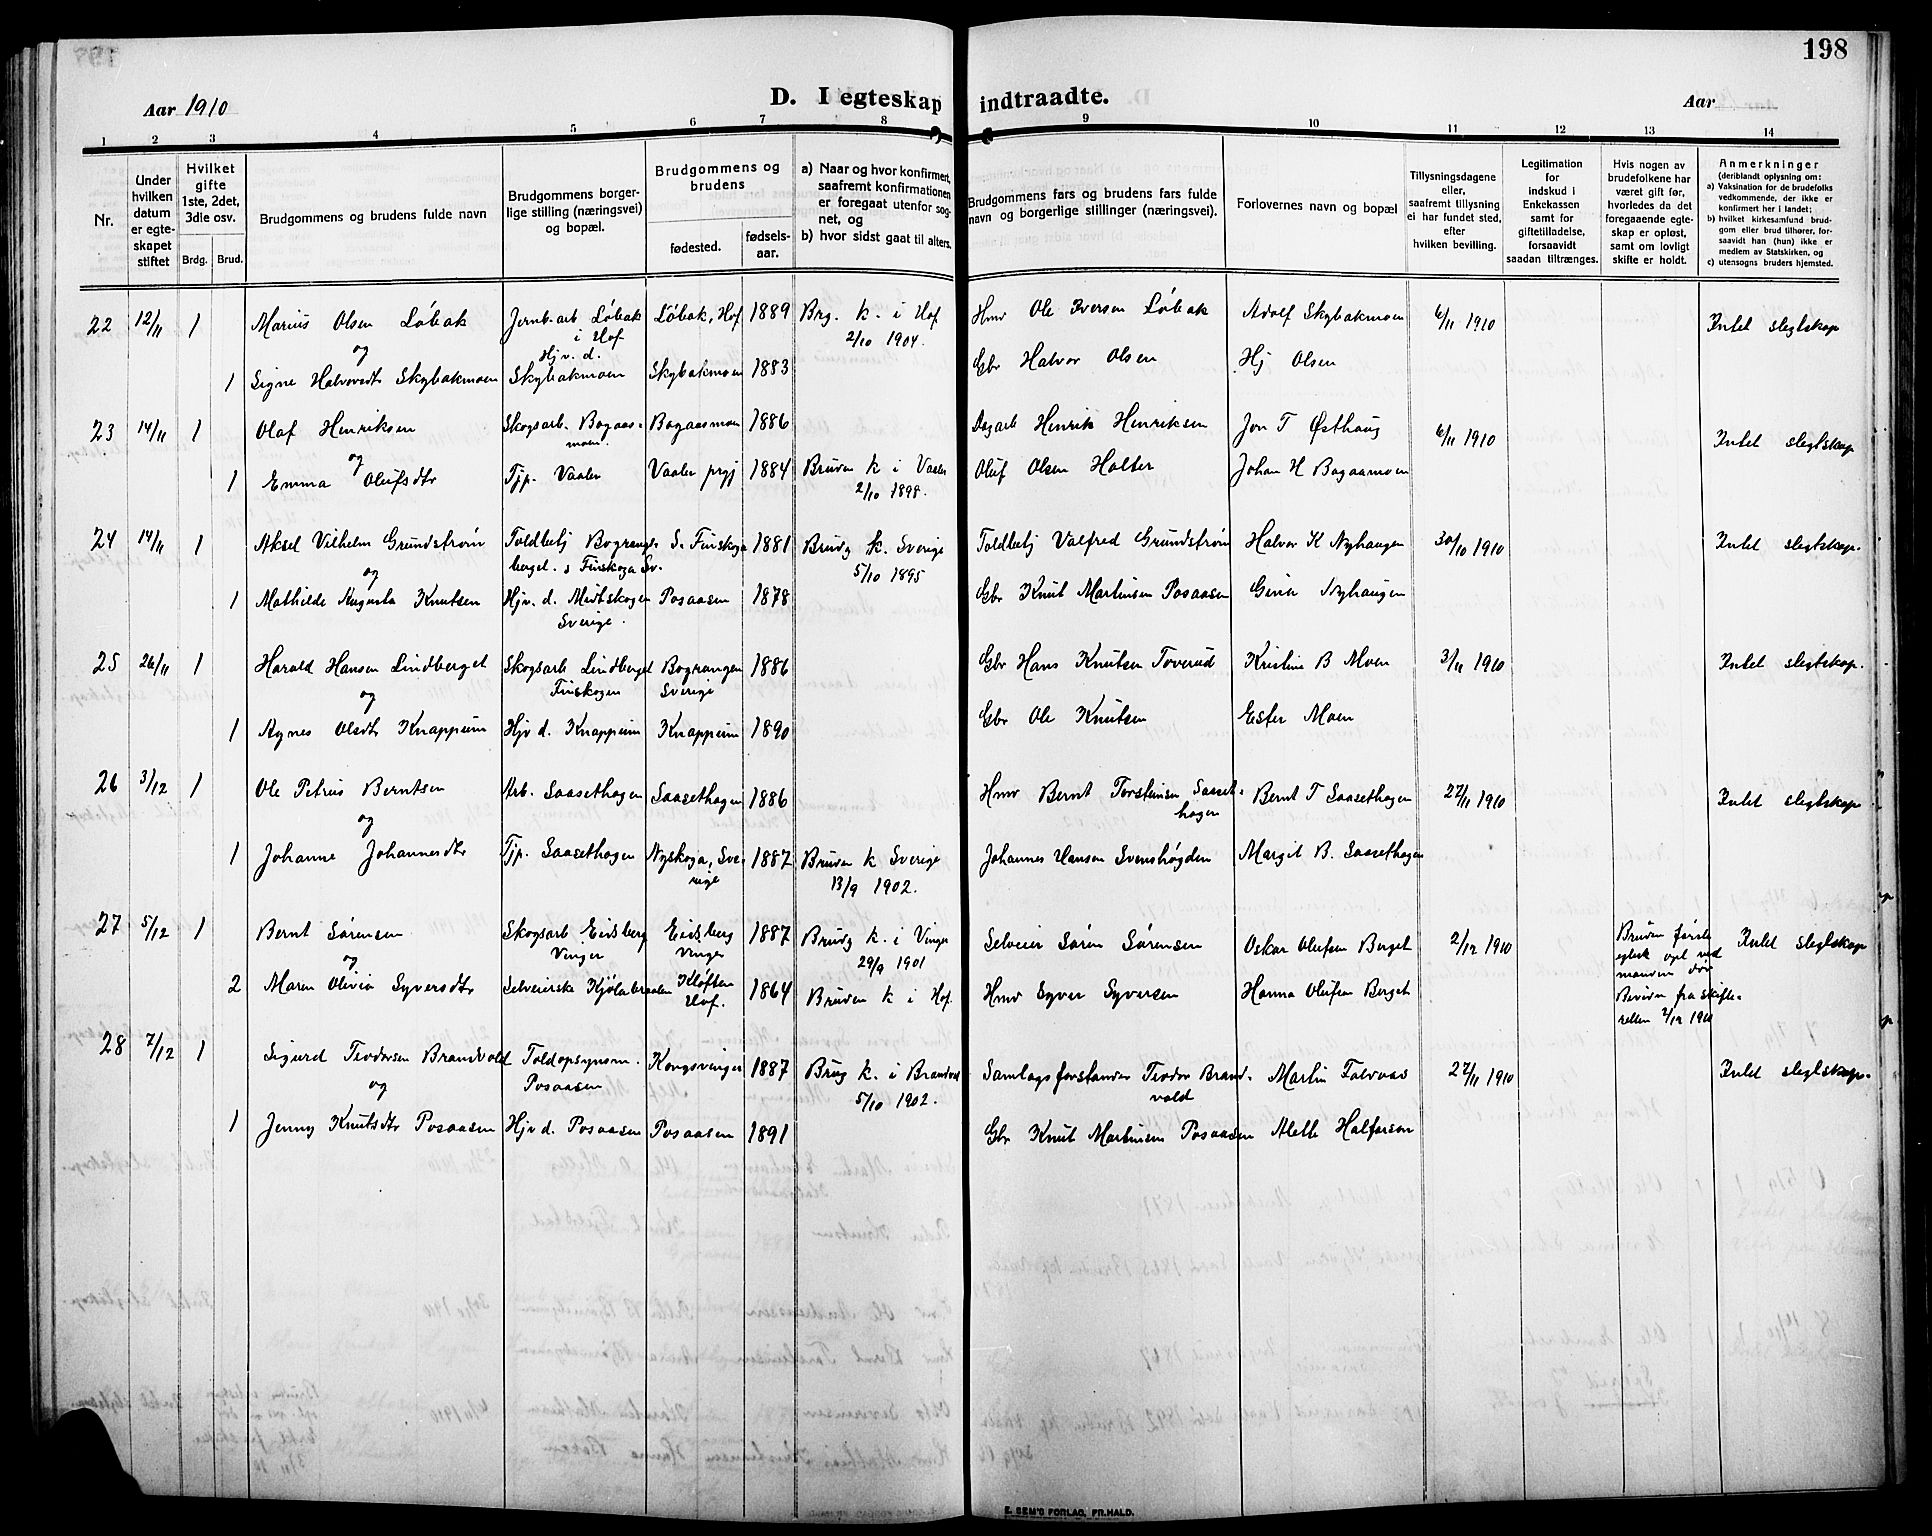 198
Aar 1910
D. I egteskap indtraadte.
Aar
1 2 3 4 5 6 7 8 9 10 11 12 13 14
Nr.
Under hvilken datum er egteskapet stiftet
Hvilket gifte 1ste, 2det, 3die osv.
Brdg. Brud.
Brudgommens og brudens fulde navn
Brudgommens borgerlige stilling (næringsvei) og bopæl.
Brudgommens og brudens
fødested.
fødselsaar.
a) Naar og hvor konfirmert, saafremt konfirmationen er foregaat utenfor sognet, og
b) hvor sidst gaat til alters.
Brudgommens fars og brudens fars fulde navn og borgerlige stillinger (næringsvei).
Forlovernes navn og bopæl
Tillysningsdagene eller, saafremt tillysning ei har fundet sted, efter hvilken bevilling.
Legitimation for indskud i Enkekassen samt for giftetilladelse, forsaavidt saadan tiltrænges.
Hvis nogen av brudefolkene har været gift før, hvorledes da det foregaaende egteskap er opløst, samt om lovligt skifte er holdt.
Anmerkninger
(deriblandt oplysning om:
a) Vaksination for de brudefolks vedkommende, der ikke er konfirmert her i landet;
b) hvilket kirkesamfund brudgom eller brud tilhører, forsaavidt han (hun) ikke er medlem av Statskirken, og
c) utensogns bruders hjemsted.
22 12/11 1 Marius Olsen Løbak Jernb.arb Løbak i Hof Løbak, Hof 1889 Brg. k. i Hof 2/10 1904. Hmv Ole Iversen Løbak Adolf Skybakmoen 6/11 1910 Intet slegtskap
og
1 Signe Halvorsdtr Skybakmoen Hjv. d. Skybakmoen Skybakmoen 1883 Gbr Halvor Olsen Hj Olsen
23 14/11 1 Olaf Henriksen Skogsarb. Bogaasmoen Bogaasmoen 1886 Dagarb Henrik Henriksen Jon T Østhaug 6/11 1910 Intet slegtskap
og
1 Emma Olufsdtr Tjp. Vaaler Vaaler prgj 1884 Bruden k i Vaaler 2/10 1898. Oluf Olsen Holter Johan H Bogaasmoen
24 14/11 1 Aksel Vilhelm Grundstrøm Toldbetj Bograngsberget. S Finskoga Sv. S. Finskoga 1881 Brudg k. Sverige 5/10 1895 Toldbetj Valfred Grundstrøm Halvor K Nyhaugen 30/10 1910 Intet slegtskap.
og
1 Mathilde Augusta Knutsen Hjv. d. Medskogen Sverige. Posaasen 1878 Gbr Knut Martinsen Posaasen Gina Nyhaugen
25 26/11 1 Harald Hansen Lindberget Skogsarb Lindberget Finskogen Bograngen Sverige 1886 Gbr Hans Knutsen Toverud Kristine B Moen 3/11 1910 Intet slegtskap.
og
1 Agnes Olsdtr Knappum Hjv d. Knappum Knappum 1890 Gbr Ole Knutsen Ester Moen
26 3/12 1 Ole Petrus Berntsen Arb. Saasethagen Saasethagen 1886 Hmv Bernt Torstensen Saasethagen Bernt T Saasethagen 27/11 1910 Intet slegtskap
og
1 Johanne Johannesdtr Tjp. Saasethagen Nyskoga, Sverige 1887 Bruden k Sverige 13/9 1902. Johannes Hansen Svenshøgden Margit B. Saasethagen
27 5/12 1 Bernt Sørensen Skogsarb Eidsberg Vinger Eidsberg Vinger 1887 Brudg k. i Vinger 29/9 1901 Selveier Søren Sørensen Oskar Olufsen Berget 2/12 1910 Bruden første egtesk opl ved manden død Bevidn fra skifteretten 2/12 1910 Intet slegtskap
og
2 Maren Olivia Syversdtr Selveierske Kjølabraaten Kløften Hof. 1864 Bruden k i Hof. Hmv Syver Syversen Hanna Olufsen Berget
28 7/12 1 Sigurd Teodorsen Brandvold Toldopsynsm. Posaasen Kongsvinger 1887 Brug k. i Brandval 5/10 1902. Samlagsforstander Teodor Brandvold Martin Falvaas 27/11 1910 Intet slegtskap.
og
1 Jenny Knutsdtr Posaasen Hjv d. Posaasen Posaasen 1891 Gbr Knut Martinsen Posaasen Alette Halfarson
E. SEM'S FORLAG, FR.HALD.